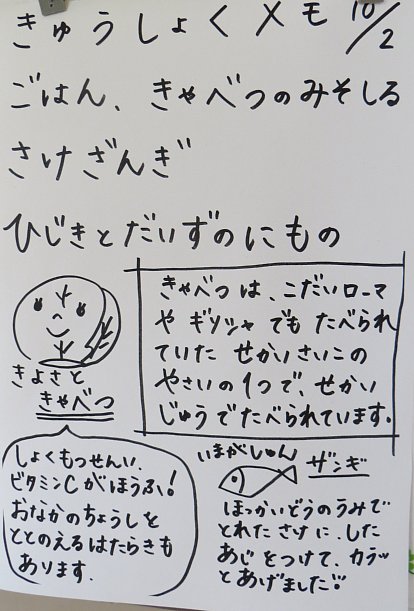 きゅうしょくメモ 10/2
ごはん、きゃべつのみそしる
さけざんぎ
ひじきとだいずのにもの
きゃべつは、こだいローマ
やギリシャでもたべられ
ていたせかいさいこの
やさいの1つで、せかい
じゅうでたべられています。
きよさと
きゃべつ
しょくもつせんい、
ビタミンCがほうふ!
おなかのちょうしを
ととのえるはたらきも
あります。
いまがしゅん
ザンギ
ほっかいどうのうみで
とれたさけに、した
あじをつけて、カラッ
とあげました!!